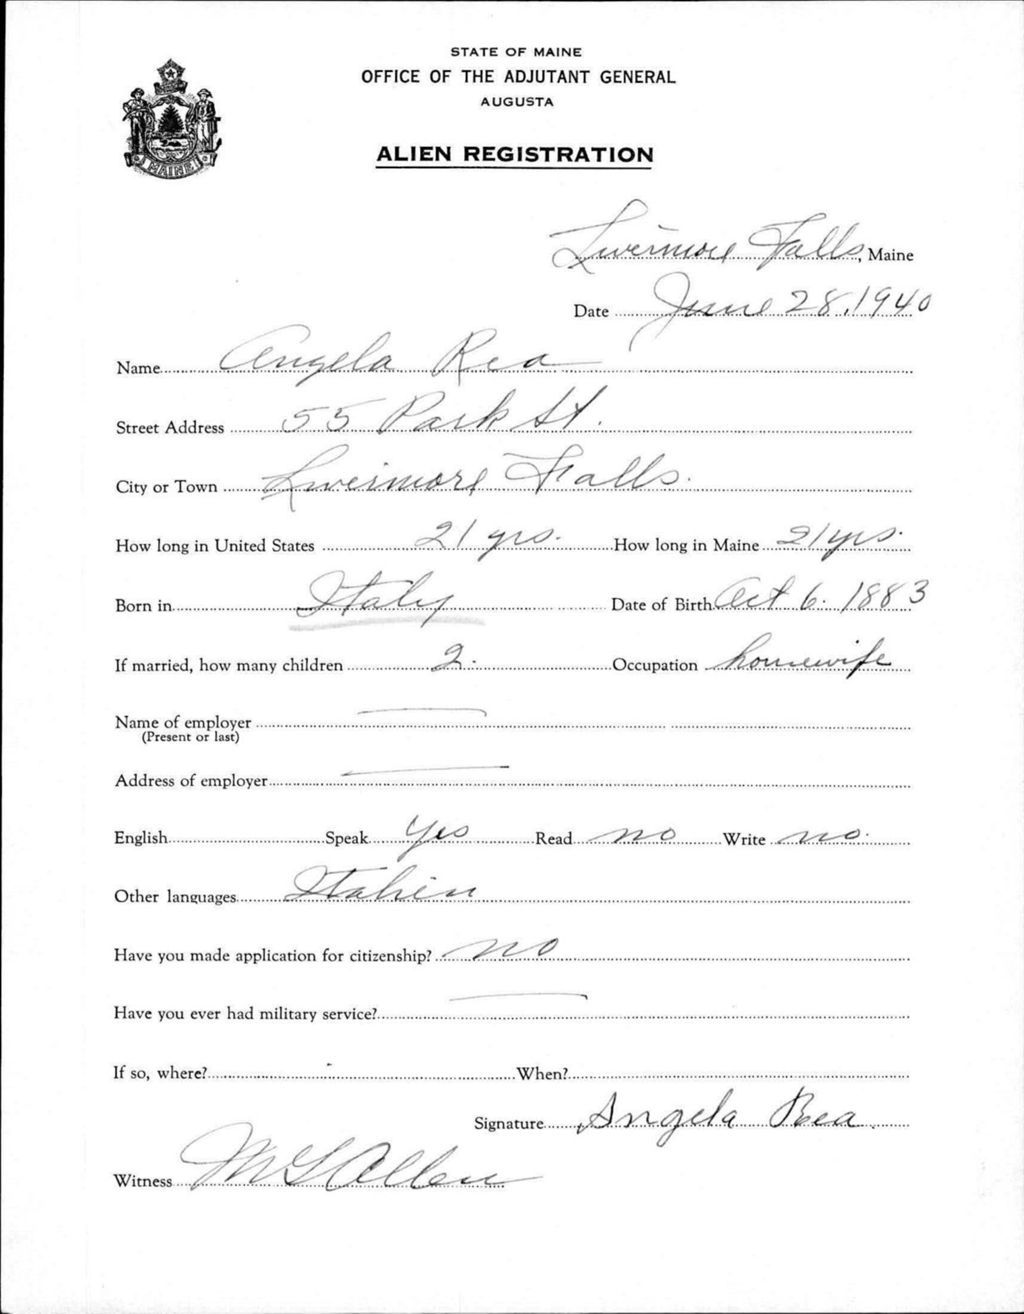 STATE OF MAINE
OFFICE OF THE ADJUTANT GENERAL
AUGUSTA
MAINE
ALIEN REGISTRATION
Livermore Falls, Maine
Date June 28, 1940
Name Angela Rea
Street Address 55 Park St.
City or Town Livermore Falls.
How long in United States 21 yrs. How long in Maine 21 yrs.
Born in Italy Date of Birth Oct 6. 1883
If married, how many children 2. Occupation housewife
Name of employer
(Present or last)
Address of employer
English Speak Yes Read no Write no.
Other languages Italien
Have you made application for citizenship? no
Have you ever had military service?
If so, where? When?
Signature Angela Rea
Witness Allen